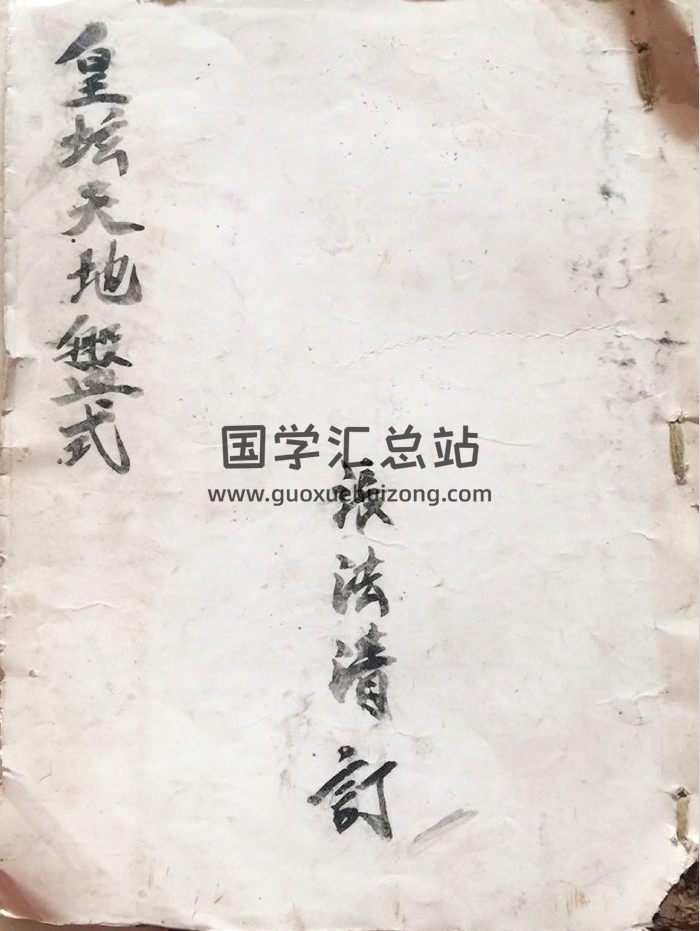 皇坛天地盤式
國学汇总站
www.guoxuehuizong.com
張法清訂